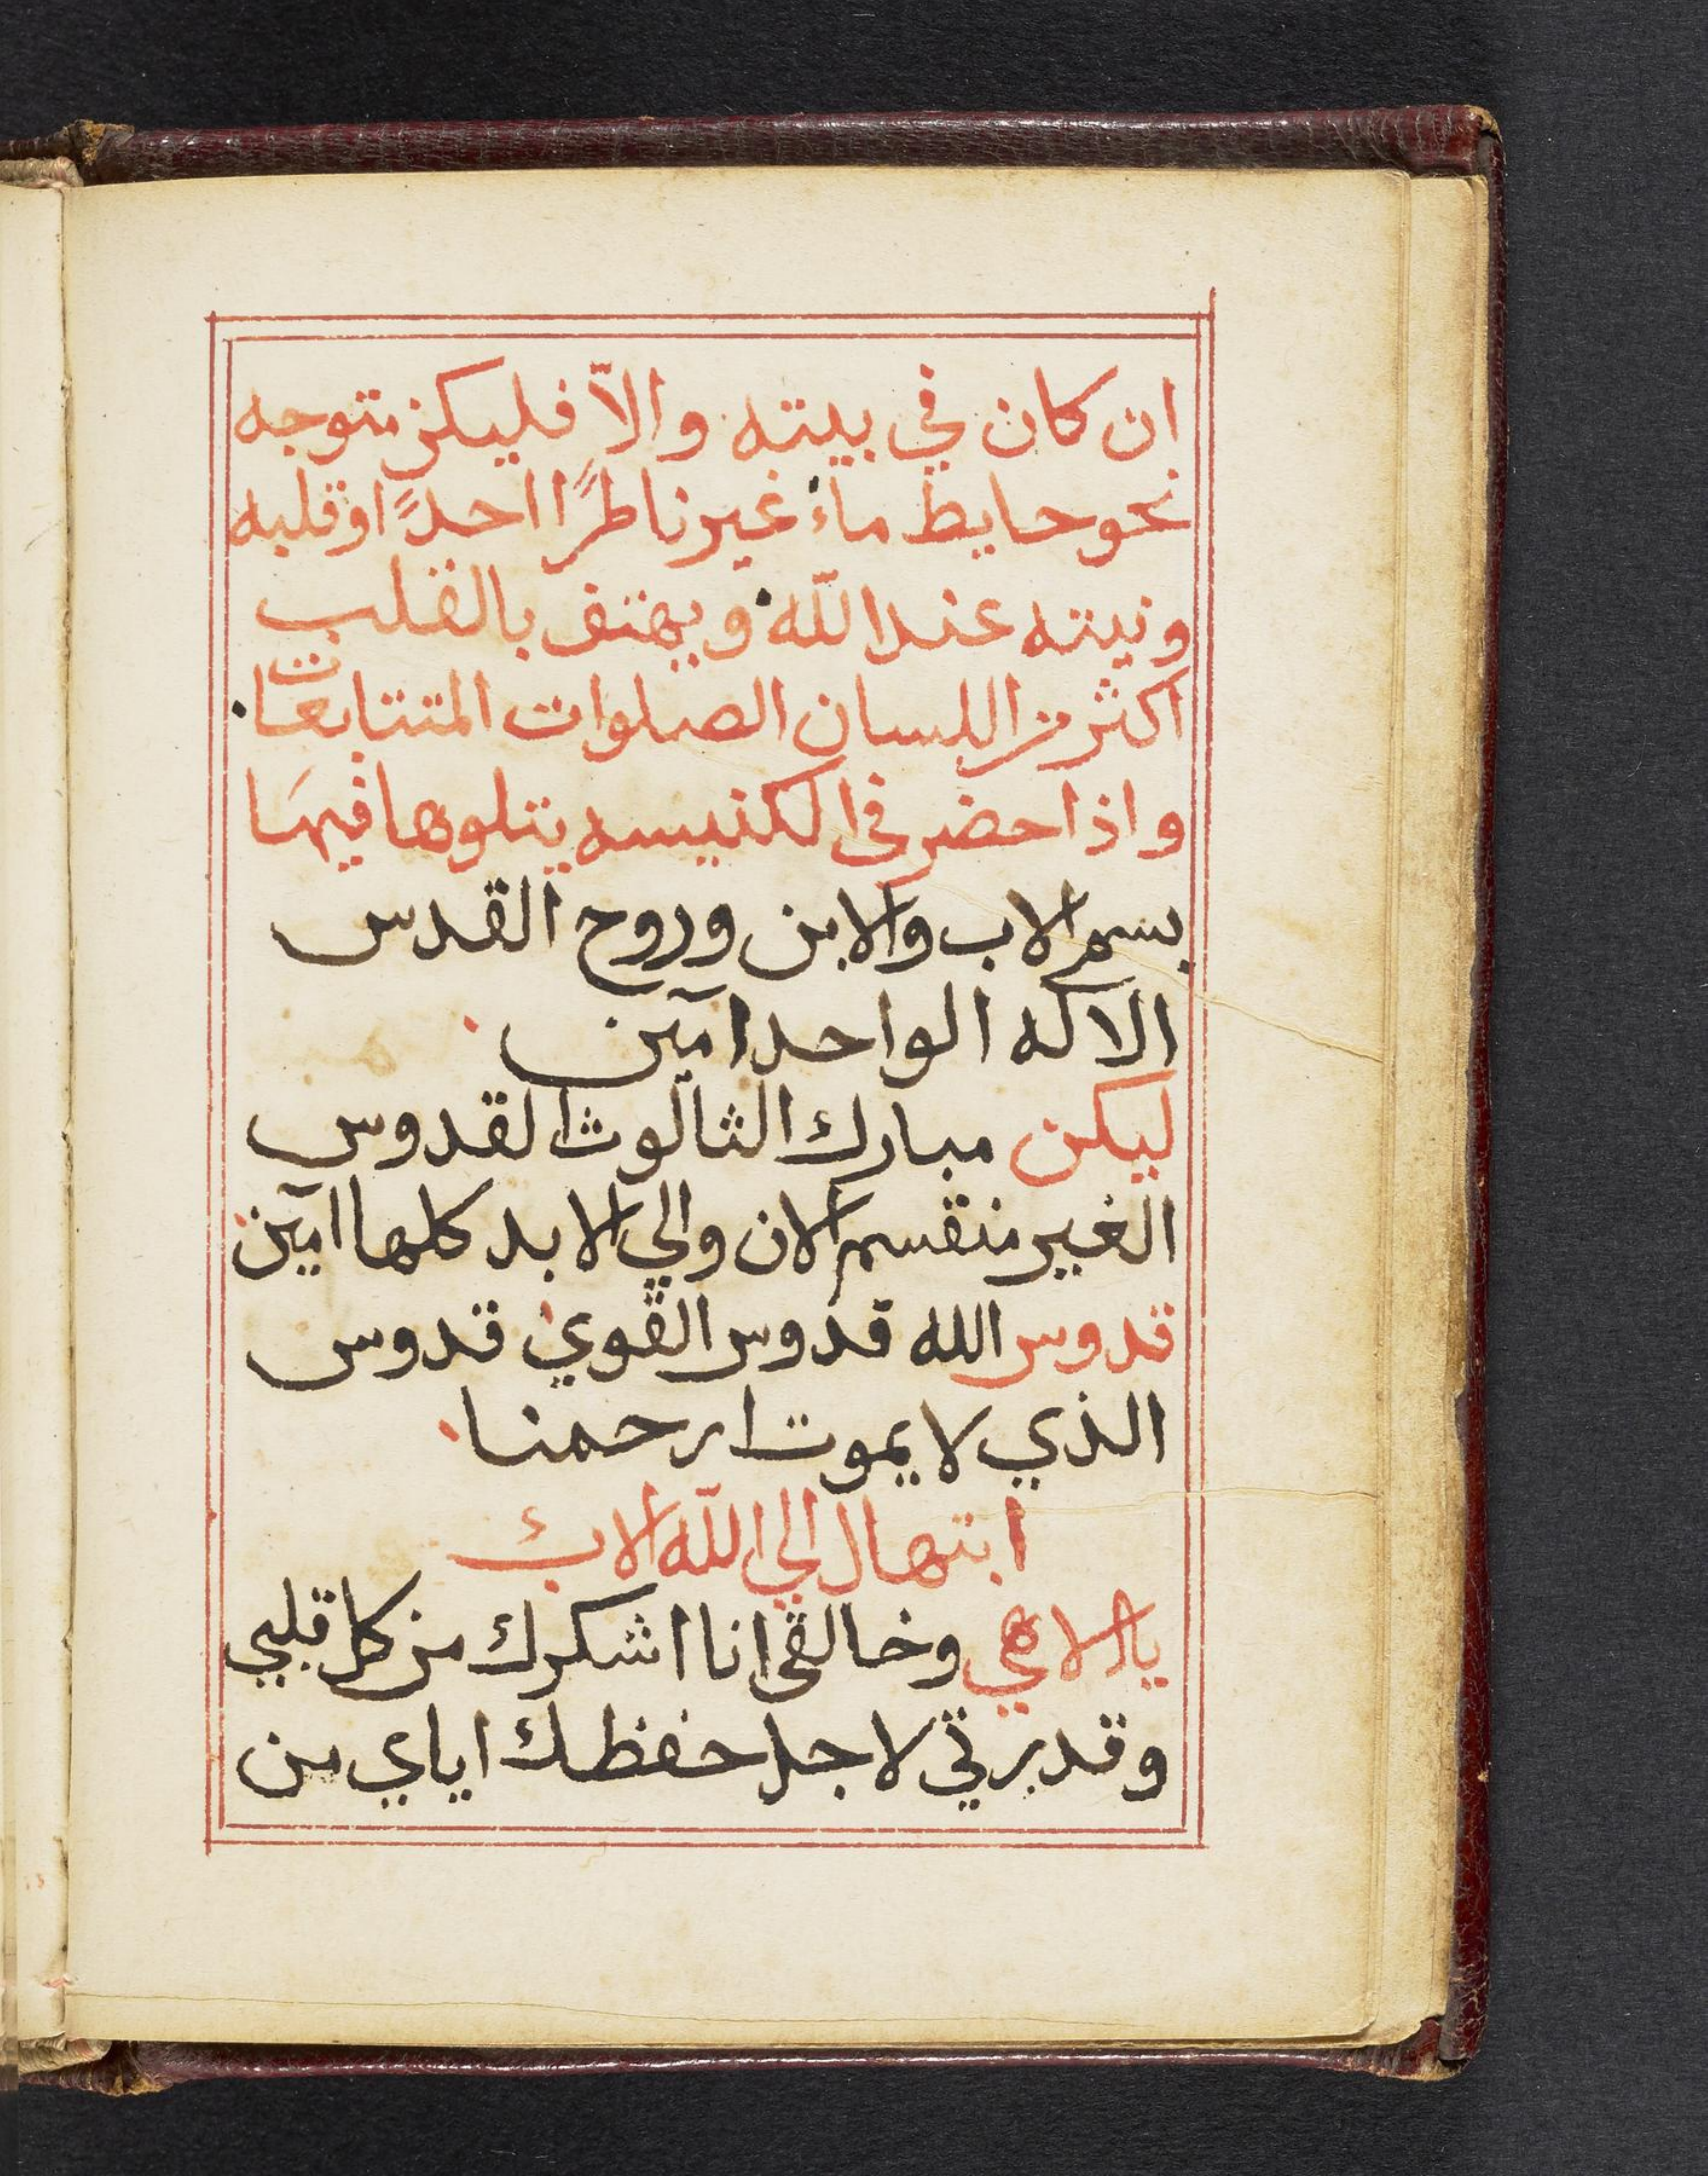 ان كان في بيته والاّ فليكن متوجه
نحو حايط ماءً غير ناظرًا احدًا وقلبه
ونيته عند الله ويهتف بالقلب
اكثر من اللسان الصلوات المتتابعات
واذا حضر في الكنيسه يتلوها فيهَا
بسم الاب والابن وروح القدس
الاله الواحد امين
ليكن مبارك الثالوث القدوس
الغير منقسم الان والي الابد كلها امين
قدوس الله قدوس القوي قدوس
الذي لا يموت ارحمنا
ابتهال الي الله الاب
يا الاهي وخالقي انا اشكرك من كل قلبي
وقدرتي لاجل حفظك اياي من